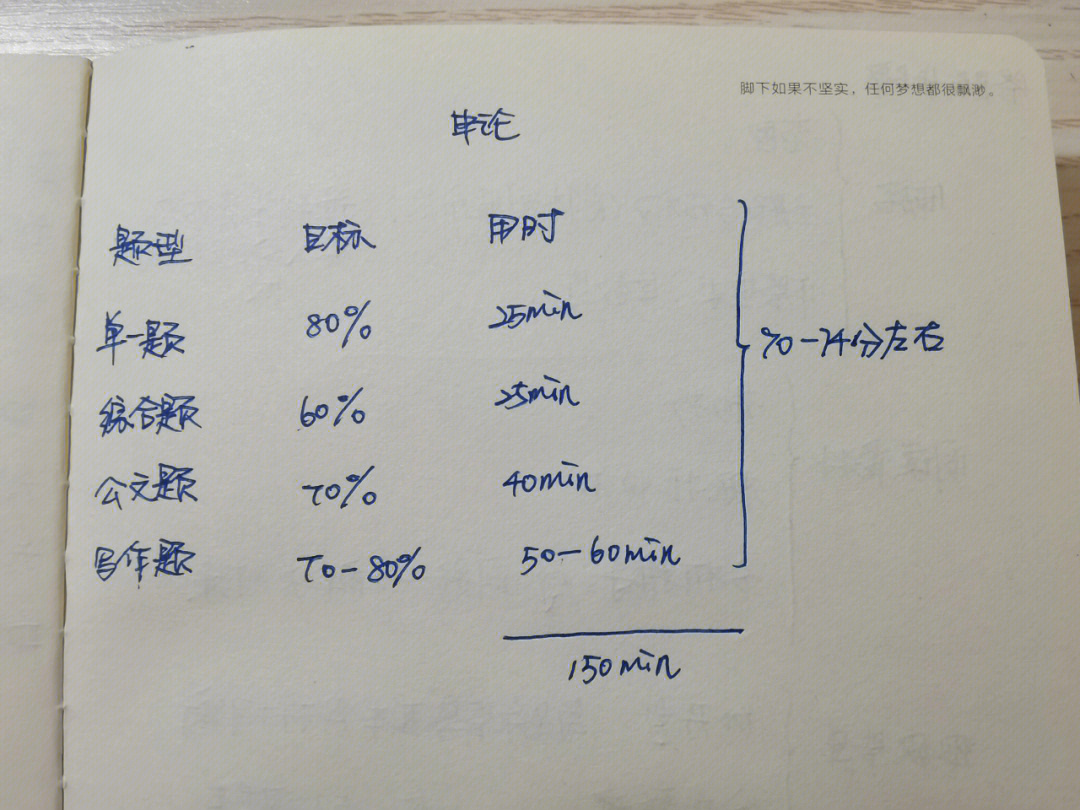 脚下如果不坚实，任何梦想都很飘渺。
申论
题型 目标 用时
单一题 80% 25min
综合题 60% 25min
公文题 70% 40min
写作题 70-80% 50-60min
70-74分左右
150min